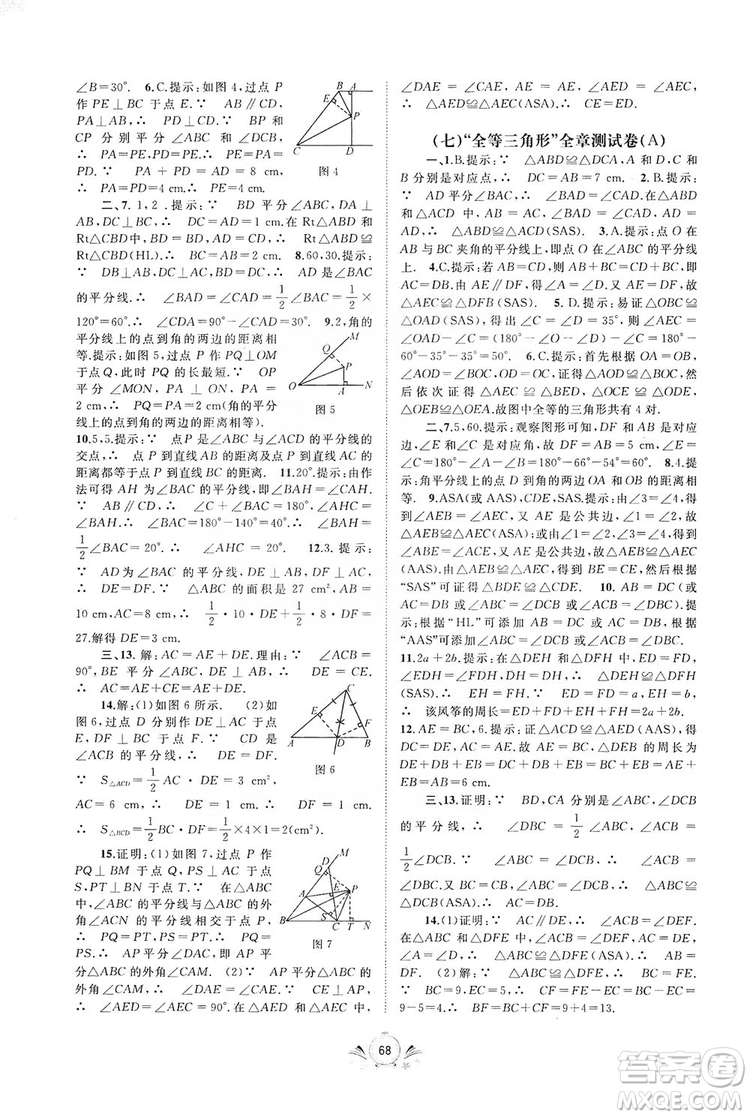 ∠B=30°. 6.C.提示:如图 4,过点 P
作 PE⊥BC 于点 E.∵ AB∥CD,
PA⊥AB,∴ PD⊥CD.∵ BP 和
CP 分别平分∠ABC 和∠DCB,
∴ PA=PE,PD=PE.∴ PE=PA=
PD.∵ PA+PD=AD=8 cm,
∴ PA=PD=4 cm.∴ PE=4 cm.
图 4
二、7.1,2.提示:∵ BD 平分∠ABC,DA⊥
AB,DC⊥BC,∴ DC=AD=1 cm.在 Rt△ABD 和
Rt△CBD 中,
Rt△CBD(HL).∴ BC=AB=2 cm. 8.60,30.提示:
∵ DB⊥AB,DC⊥AC,DB=DC,∴ AD 是∠BAC
的平分线.∴ ∠BAD=∠CAD=1/2∠BAC=1/2×
120°=60°.∴ ∠CDA=90°-∠CAD=30°. 9.2,角的
平分线上的点到角的两边的距离相
等.提示:如图 5,过点 P 作 PQ⊥OM
于点 Q,此时 PQ 的长最短.∵ OP
平分∠MON,PA⊥ON,PA=
2 cm,∴ PQ=PA=2 cm(角的平分
线上的点到角的两边的距离相等).
图 5
10.5,5.提示:∵ 点 P 是∠ABC 与∠ACD 的平分线的
交点,∴ 点 P 到 AB 的距离、点 P 到 BC 的距离、点 P 到 AC 的
距离都等于点 P 到 BD 的距离. 11.20°.提示:由作
法可得 AH 为∠BAC 的平分线,∴ ∠CAH=∠BAH.
∵ AB∥CD,∴ ∠BAC+∠C=180°,∠AHC=∠BAH.
∴ ∠BAC=180°-∠C=180°-140°=40°.∴ ∠BAH=
1/2∠BAC=20°.∴ ∠AHC=20°. 12.3.提示:
∵ AD为∠BAC 的平分线,DE⊥AB,DF⊥AC,
∴ DE=DF.∵ △ABC 的面积是 27 cm²,AB=
10 cm,AC=8 cm,∴ 1/2·AB·DE+1/2·AC·DF=
27.解得 DE=3 cm.
三、13.解:AC=AE+DE.理由:∵ ∠ACB=
90°,BE 平分∠ABC,DE⊥AB,∴ DE=CE.
∴ AC=AE+CE=AE+DE.
14.解:(1)如图 6 所示.(2)如
图 6,过点 D 分别作 DE⊥AC,
DF⊥BC,垂足分别为点 E,F.
∵ CD 是∠ACB的平分线,∴ DE=DF.
∵ S△ACD=1/2AC·DE=3 cm²,
AC=6 cm,∴ DE=1 cm.∴ DF=1 cm.
∴ S△BCD=1/2BC·DF=1/2×4×1=2(cm²).
图 6
15.证明:(1)如图 7,过点 P 作
PQ⊥BM 于点 Q,PT⊥BN 于点 T,
PS⊥AC 于点 S.∵ 在△ABC 中,∠ABC的平分线与外
角∠ACN 的平分线交于点 P,
∴ PQ=PT,PS=PT.
∴ PQ=PS.∴ AP 平
分△ABC 的外角∠CAM.(2)∵ AP 平分△ABC
的外角∠CAM,∴ ∠CAP=∠MAP.∵ CE⊥AP,
∴ ∠AED=∠AEC=90°.在△AED 和△AEC 中,
图 7
∠DAE=∠CAE,AE=AE,∠AED=∠AEC,
∴ △AED≌△AEC(ASA).∴ CE=ED.
(七)“全等三角形”全章测试卷(A)
一、1.B.提示:∵ △ABD≌△DCA,A和 D,C 和
B 分别是对应点,∴ AB=DC=7 cm. 2.B.提示:
∵ AP 平分∠BAC,∴ ∠BAP=∠CAP.∴ △APD≌
△APE(SAS). 3.A.提示:点 O 在
AB 与 BC 夹角的平分线上,即点 O 在∠ABC 的平分线
上. 4.C.提示:若 AC=DF,则根据已知条件,可得
△AEC≌△DFB(SAS). 5.D.提示:易证△OBC≌
△OAD(SAS),得出∠OBC=∠OAD=180°-∠O-
∠D=180°-60°-35°=85°,则∠DBE=95°,∠BED=
180°-35°-95°=50°. 6.C.提示:首先根据 OA=OB,
∠AOC=∠BOC,OC=OC 得△AOC≌△BOC,然
后依次证得△AEC≌△BEC,△ADE≌△BDE,
△OEB≌△OEA.故图中全等的三角形共有 4 对.
二、7.5,60.提示:观察图形可知,DF 与 AB 是对应
边,∠E 与∠C 是对应角,故 DF=AB=5,∠E=
∠C=180°-∠A-∠B=180°-66°-54°=60°. 8.4.提
示:角平分线上的点到角的两边的距离相等.
9.ASA(或SAS),CDE,SAS.提示:由∠1=∠2,
∠3=∠4,AE 是公共边,∠1=∠2,
∴ ∠ABE=∠ACE,BE=CE.然后根据
“SAS”可证得△BDE≌△CDE. 10. AB=DC(或
AC=DB 或∠ABC=∠DCB 或∠ACB=∠DBC).提
示:根据“HL”可添加 AB=DC 或 AC=DB;根据
“AAS”可添加∠ABC=∠DCB 或∠ACB=∠DBC.
11.2a+2b.提示:在△DEH 和△DFH 中,ED=FD,
∠EDH=∠FDH,DH=DH,∴ △DEH≌△DFH
(SAS).∴ EH=FH.∵ ED=FD=a,EH=b,
∴ 该风筝的周长=ED+FD+EH+FH=2a+2b.
12.AE=BC,6.提示:证△ACD≌△AED(SAS),得
DC=DE,AE=AC=BC.∴ △DEB 的周长为
DE+DB+EB=DC+DB+EB=BC+EB=AE+
EB=AB=6 cm.
三、13.证明:∵ BD,CA 分别是∠ABC,∠DCB
的平分线,∴ ∠DBC=1/2∠ABC,∠ACB=
1/2∠DCB.∵ ∠ABC=∠DCB,∴ ∠ACB=
∠DBC.在△ABC 和△DCB 中,∠ABC=∠DCB,
BC=CB,∠ACB=∠DBC,∴ △ABC≌△DCB
(ASA).∴ AB=DC.
14.(1)证明:∵ AC∥DE,∴ ∠ACB=
∠DEF.在△ABC 和△DFE 中,∠ACB=∠DEF,
∠A=∠D,AB=DF,∴ △ABC≌△DFE
(AAS).(2)解:∵ △ABC≌△DFE,∴ BC=FE.
∴ BC-EC=FE-EC,即 BE=CF=BC-EC=
9-5=4.∴ BF=BC+CF=9+4=13.
68
答案圈
MXQE.COM